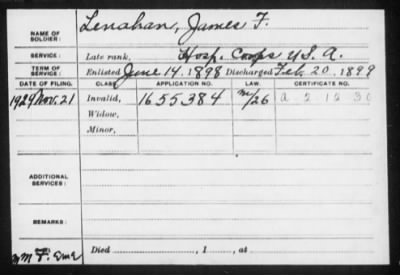 NAME OF SOLDIER: Lenahan, James F.
SERVICE: Late rank, Hosp. Corps U.S.A.
TERM OF SERVICE: Enlisted June 14, 1898 Discharged Feb. 20, 1899
DATE OF FILING. CLASS. APPLICATION NO. LAW. CERTIFICATE NO.
1929 Nov. 21 Invalid, 1655384 m/26 A 2 12 30
Widow,
Minor,
ADDITIONAL SERVICES:
REMARKS:
Died , 1 , at